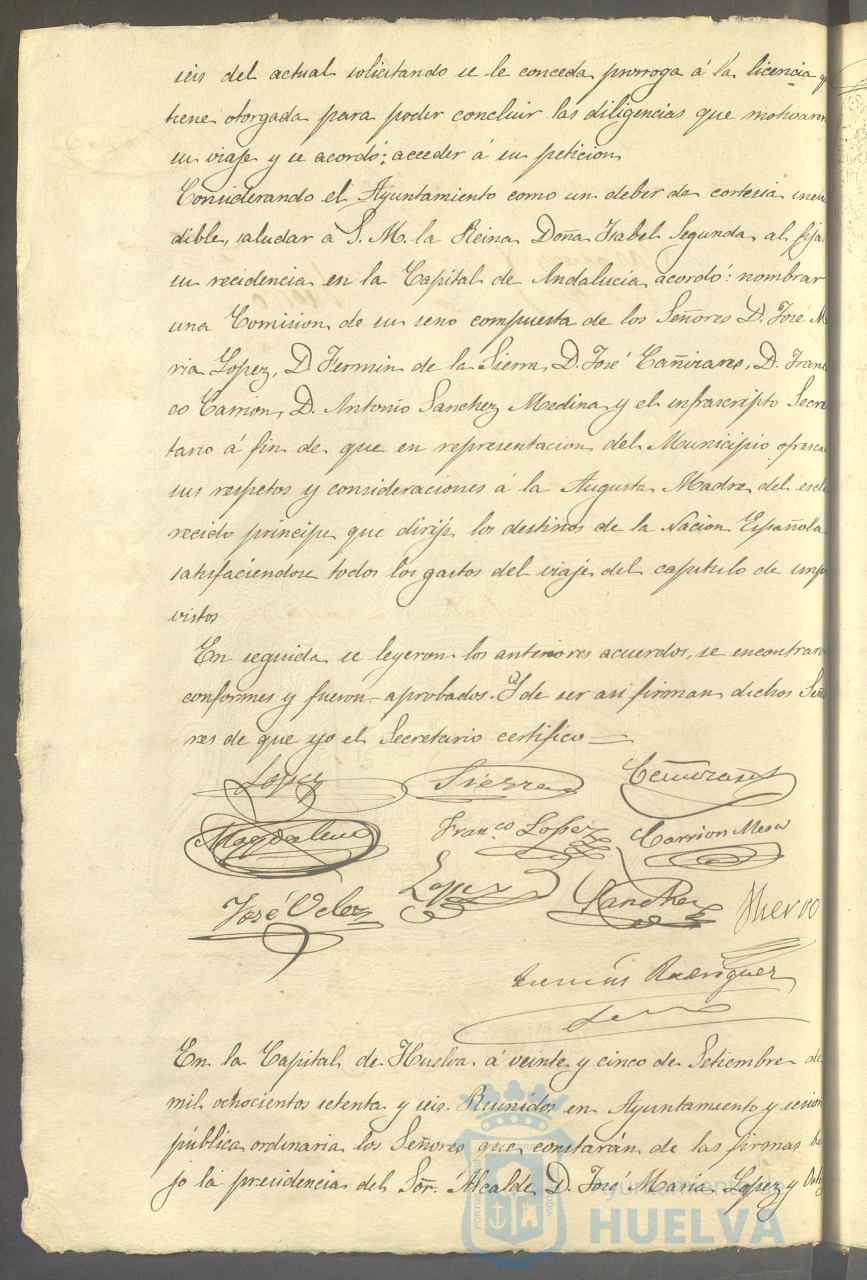 seis del actual solicitando se le conceda prorroga á la licencia q
tiene otorgada para poder concluir las diligencias que motivaron
su viaje y se acordó; acceder á su peticion
Considerando el Ayuntamiento como un deber de cortesia inelu
dible, saludar a S. M. la Reina Doña Isabel Segunda al fijar
su recidencia en la Capital de Andalucia, acordó: nombrar
una Comision de su seno compuesta de los Señores D. José Ma
ria Lopez, D Fermin de la Sierra, D. José Cañizares, D. Francis
co Carrion, D. Antonio Sanchez Medina y el infrascripto Secre
tario á fin de que en representacion del Municipio ofrescan
sus respetos y consideraciones á la Augusta Madre del escla
recido principe que dirije los destinos de la Nacion Española
satisfaciendose todos los gastos del viaje del capitulo de impre
vistos
En seguida se leyeron los anteriores acuerdos, se encontraron
conformes y fueron aprobados. Y de ser asi firman dichos Seño
res de que yo el Secretario certifico
Lopez Sierra Cañizares
Magdalena Fran.co Lopez Carrion Mesa
José Velez Lopez Sanchez
Rodriguez
En la Capital de Huelva á veinte y cinco de Setiembre de
mil ochocientos setenta y seis. Reunidos en Ayuntamiento y sesion
pública ordinaria los Señores que constarán de las firmas ba
jo la presidencia del Sor. Alcalde D. José Maria Lopez y
Ayuntamiento de
HUELVA